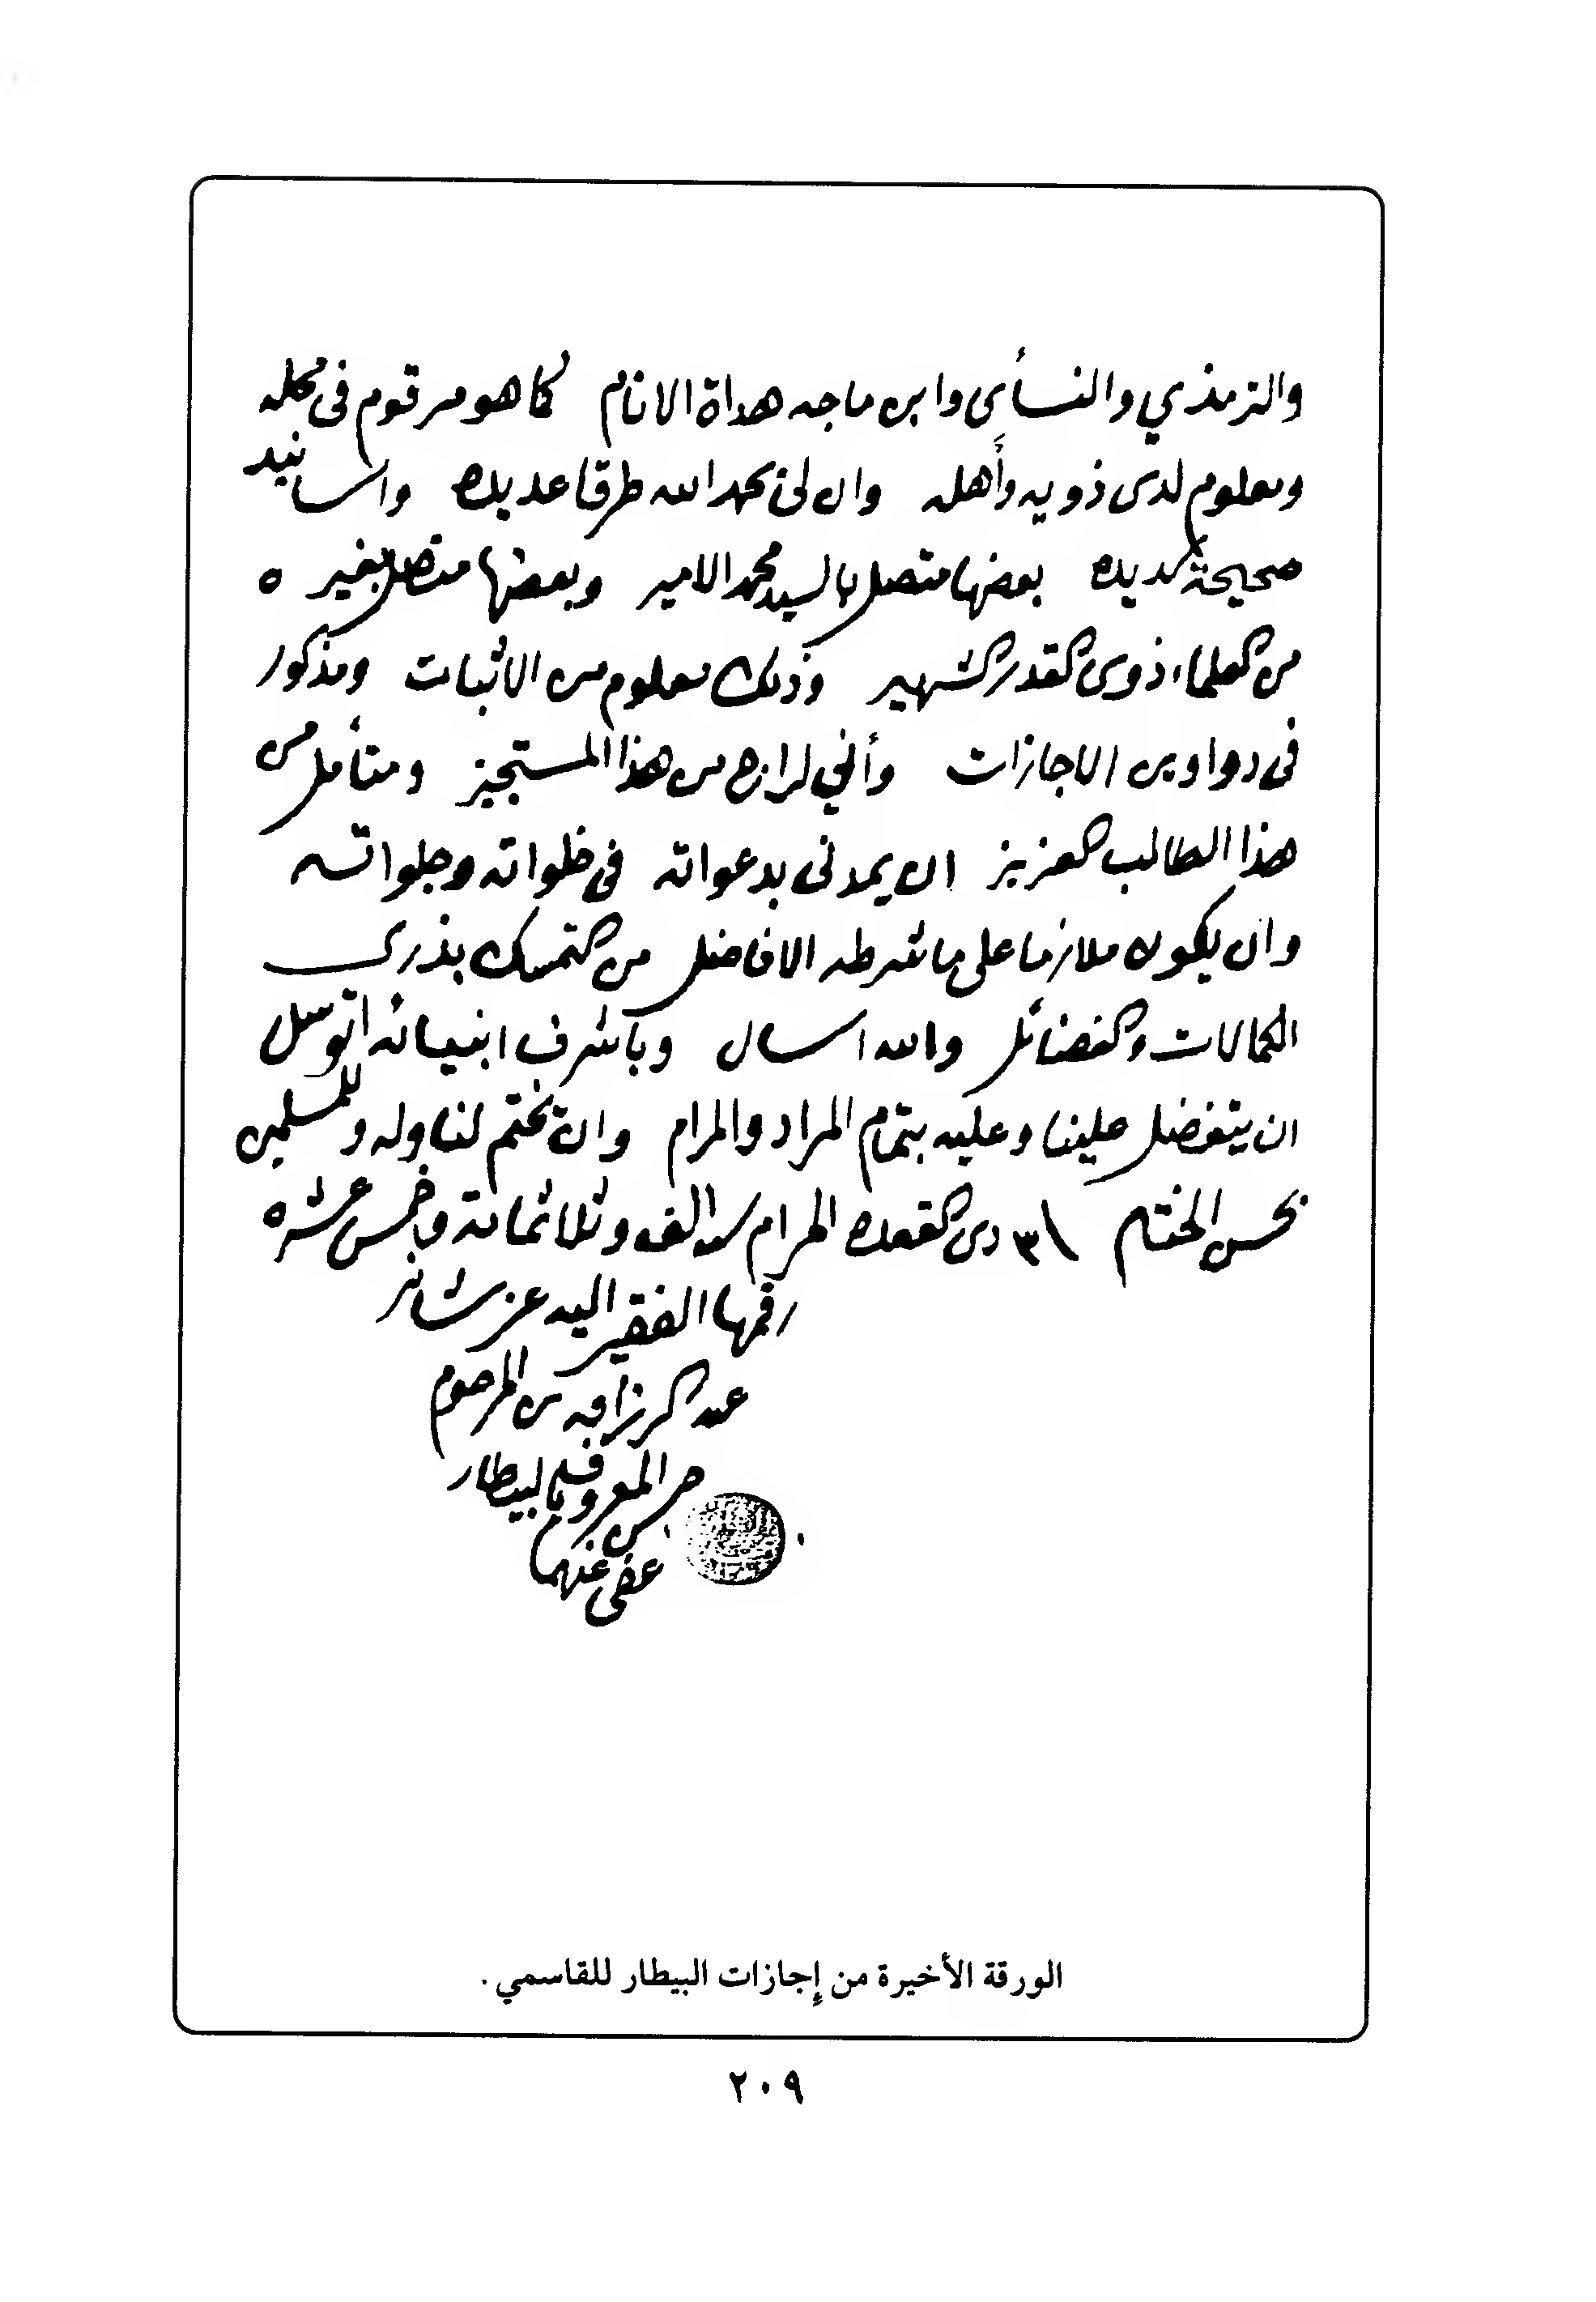 والترمذي والنسأى وابن ماجه هداة الانام كما هو مرقوم فى محله
ومعلوم لدى ذويه وأهله وان لى بحمد الله طرقا عديده واسانيد
صحيحة سديده بعضها متصل بالسيد محمد الامير وبعضها متصل بغيره
من العلماء ذوى القدر الشهير وذلك معلوم من الاثبات ومذكور
فى دواوين الاجازات وأني لراج من هذا المستجيز ومتأمل من
هذا الطالب العزيز ان يمدنى بدعواته فى خلواته وجلواته
وان يكون ملازما على ما شرطه الافاضل من التمسك بذرى
الكمالات والفضائل والله اسال وبأشرف انبيائه اتوسل
ان يتفضل علينا وعليه بتمام المراد والمرام وان يختم لنا وله وللمسلمين
بحسن الختام ٣١ ذى القعده الحرام سنة الف وثلاثمائة وخمس عشره
رقمها الفقير اليه عز شانه
عبد الرزاق بن المرحوم
حسن المعروف بالبيطار
عفى عنهما
الورقة الأخيرة من إجازات البيطار للقاسمي .
٢٠٩